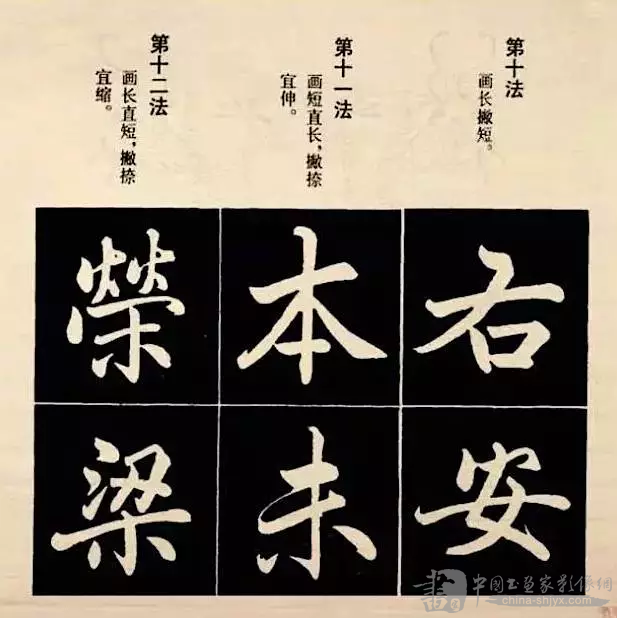 第十法
画长撇短。
第十一法
画短直长，撇捺
宜伸。
第十二法
画长直短，撇捺
宜缩。
右
安
本
未
榮
梁
書 中国书画家影像网
www.china-shjyx.com